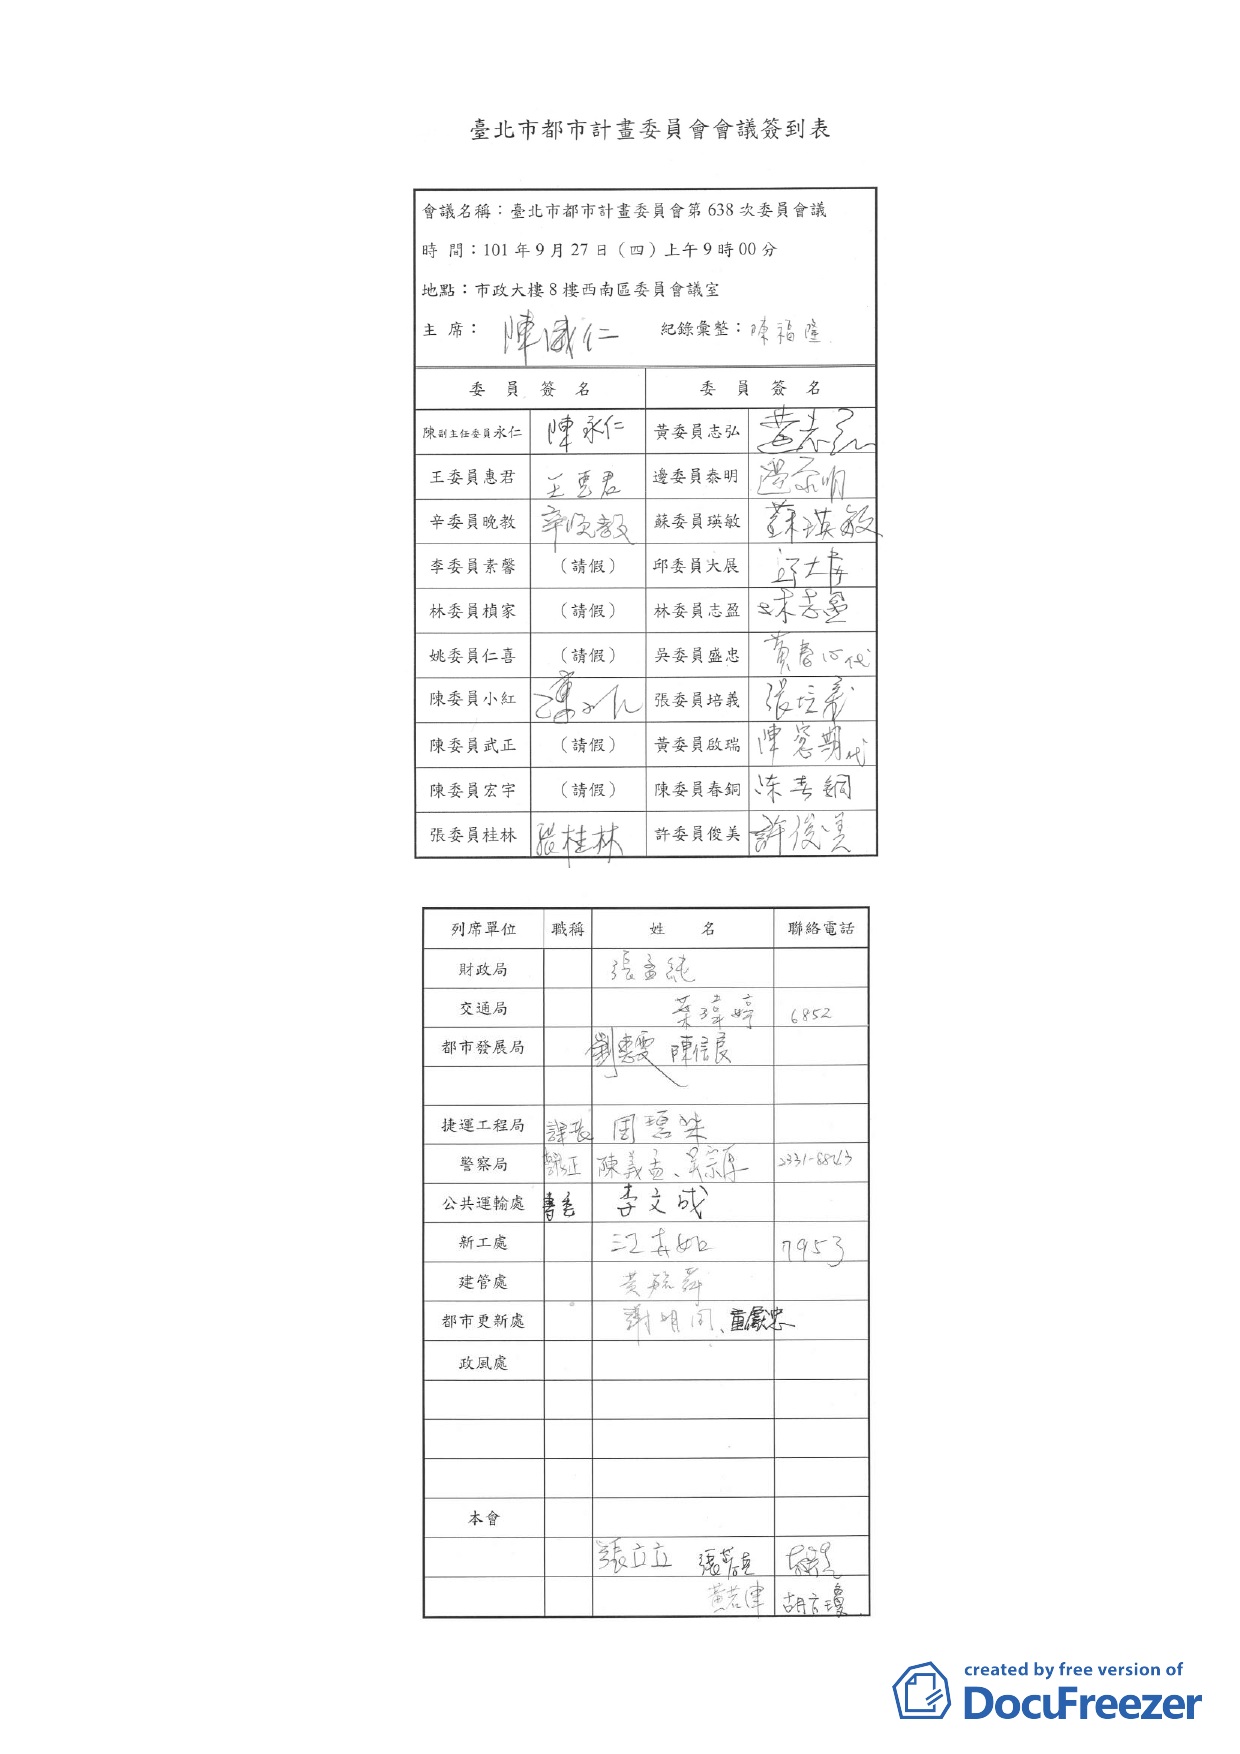 臺北市都市計畫委員會會議簽到表
會議名稱：臺北市都市計畫委員會第 638 次委員會議
時 間：101 年 9 月 27 日（四）上午 9 時 00 分
地點：市政大樓 8 樓西南區委員會議室
主 席： 陳威仁 紀錄彙整：陳福隆
委 員 簽 名 委 員 簽 名
陳副主任委員永仁 陳永仁 黃委員志弘 黃志弘
王委員惠君 王惠君 邊委員泰明 邊泰明
辛委員晚教 辛晚教 蘇委員瑛敏 蘇瑛敏
李委員素馨 （請假） 邱委員大展 邱大展
林委員楨家 （請假） 林委員志盈 林志盈
姚委員仁喜 （請假） 吳委員盛忠 黃 代
陳委員小紅 陳小紅 張委員培義 張培義
陳委員武正 （請假） 黃委員啟瑞 陳 期代
陳委員宏宇 （請假） 陳委員春銅 陳春銅
張委員桂林 張桂林 許委員俊美 許俊美
列席單位 職稱 姓 名 聯絡電話
財政局 張孟純
交通局 葉瑋婷 6852
都市發展局 劉惠雯 陳信良
捷運工程局 課長 周
警察局 警正 陳義孟、吳
公共運輸處 專委 李文成
新工處 江 如 7953
建管處 黃毓舜
都市更新處 謝明同、童獻忠
政風處
本會
張立立 張蓉真
黃若津 胡方瓊
created by free version of
DocuFreezer